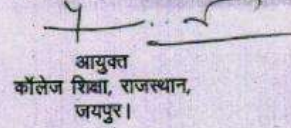 आयुक्त
कॉलेज शिक्षा, राजस्थान,
जयपुर।